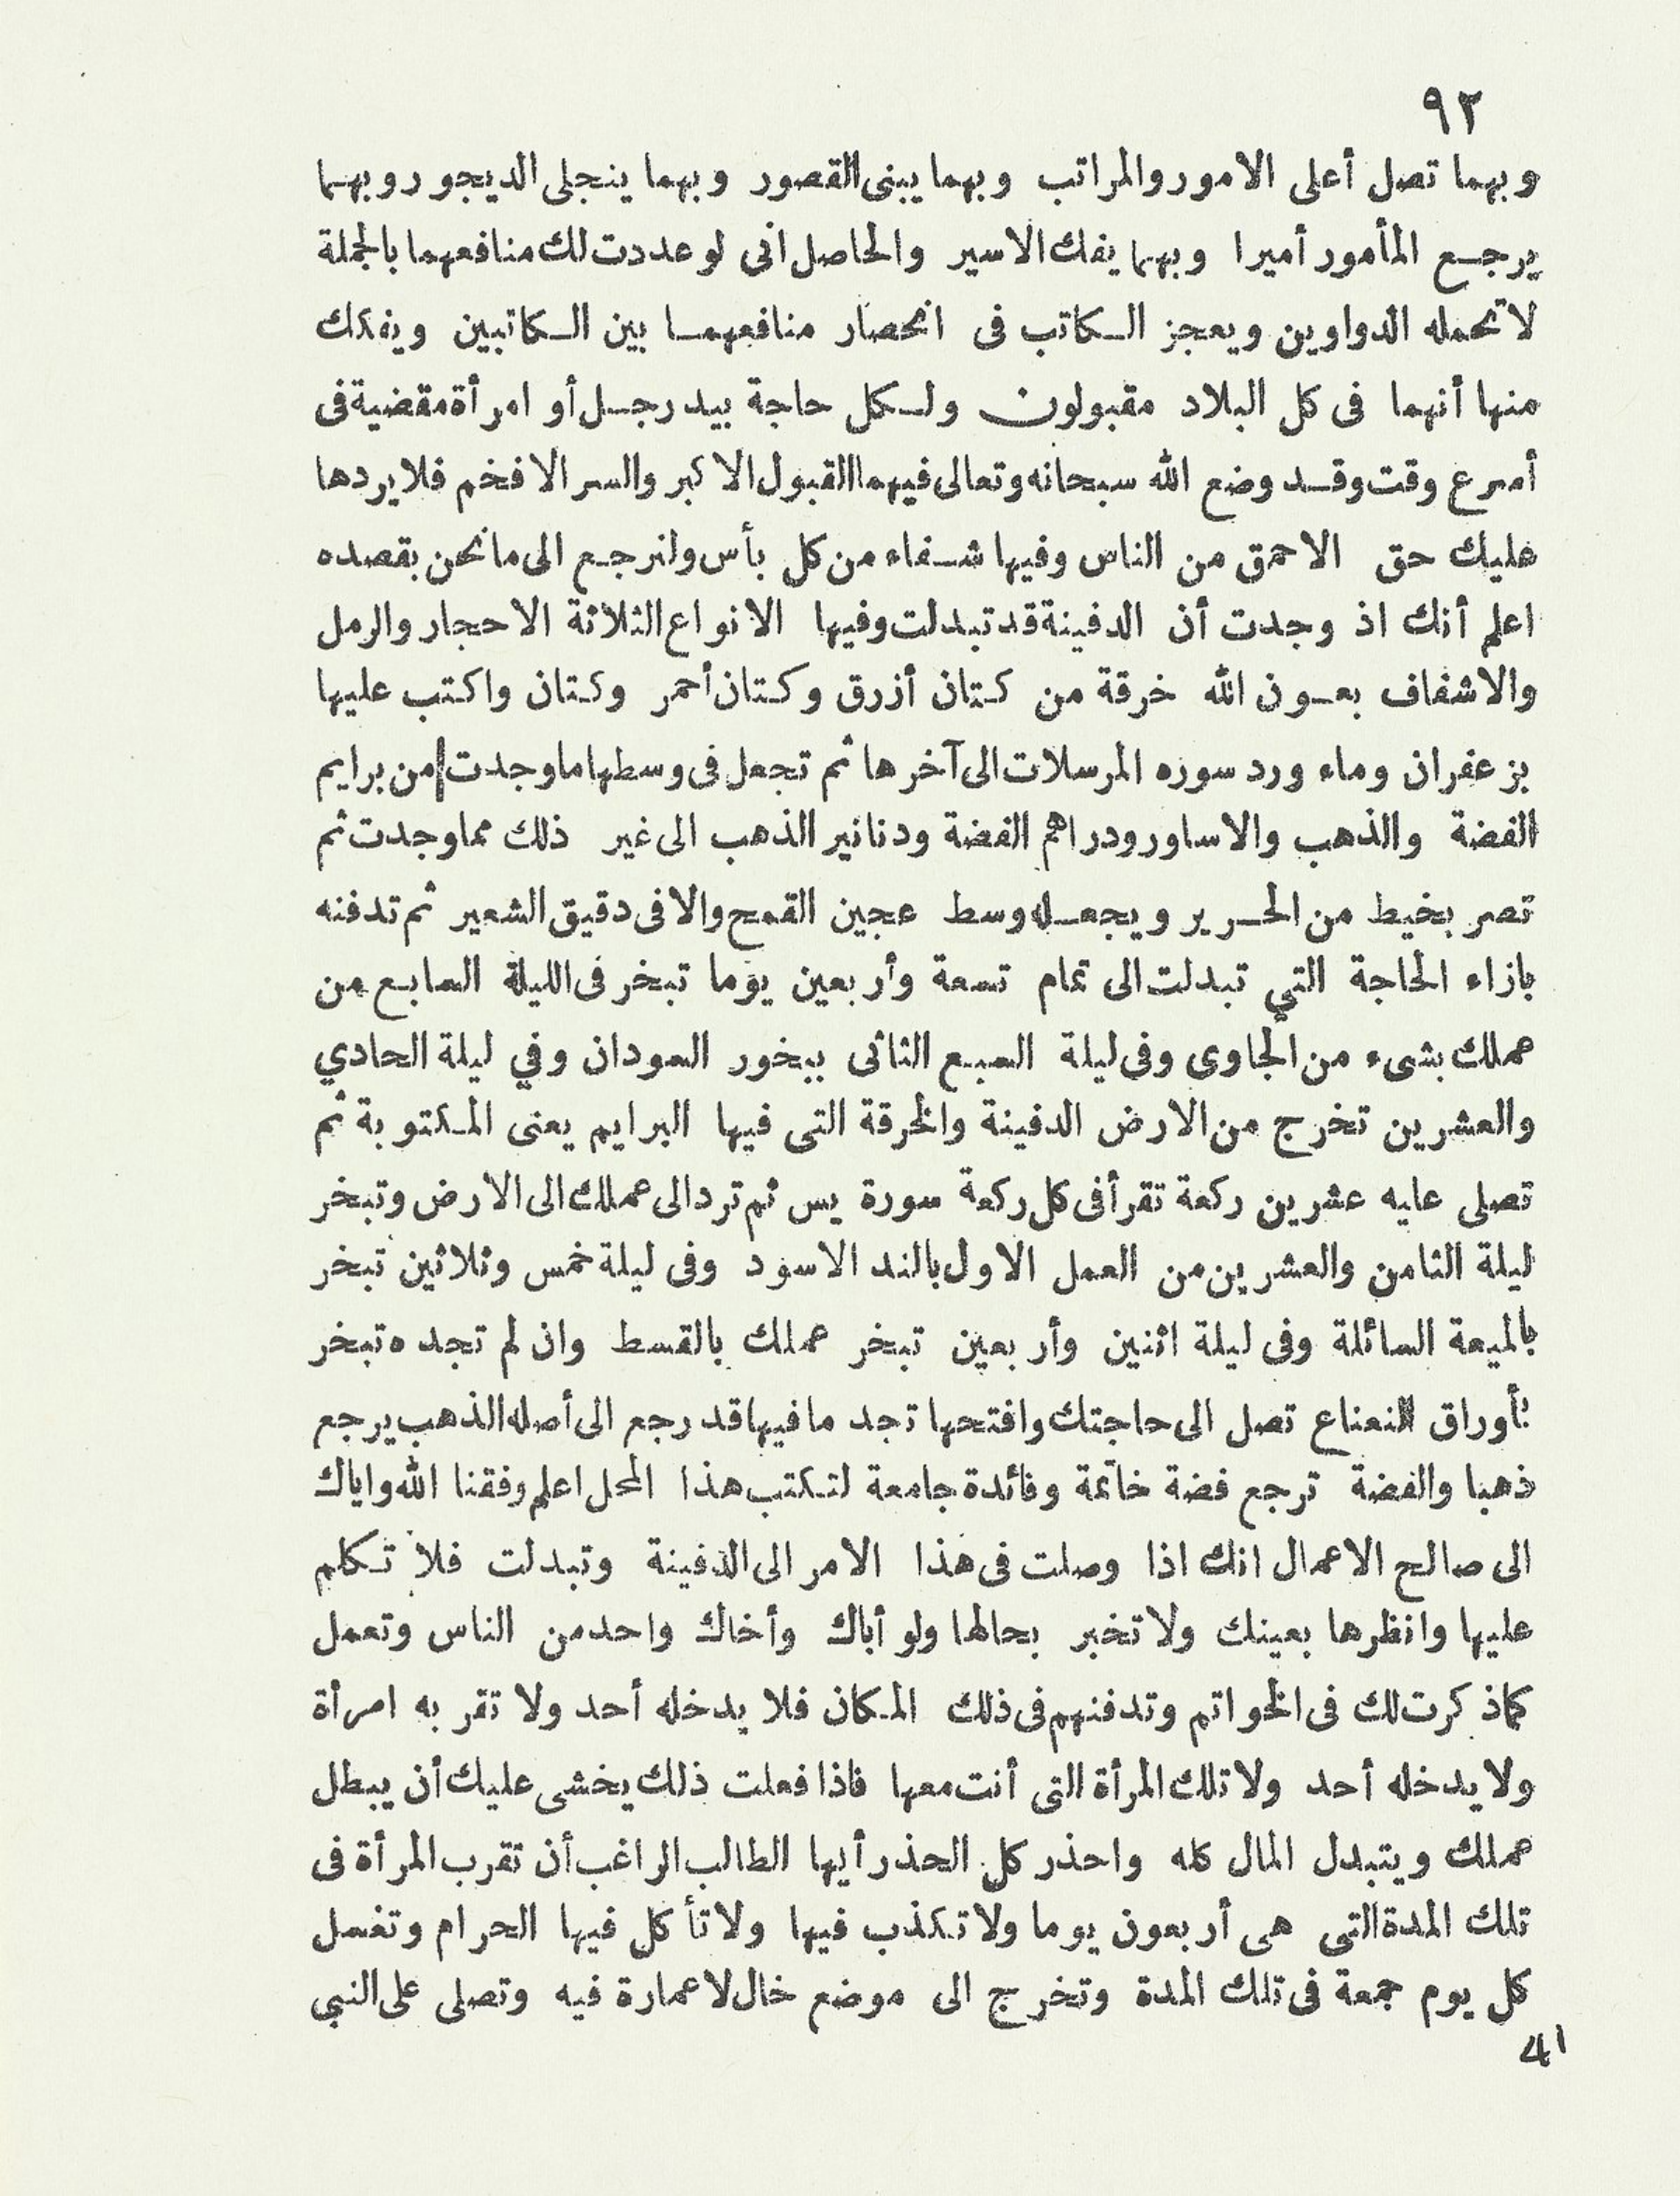 ٩٢
وبهما تصل أعلى الامور والمراتب وبهما يبنى القصور وبهما ينجلى الديجور وبهما
يرجع المأمور أميرا وبهما يفك الاسير والحاصل انى لو عددت لك منافعهما بالجملة
لا تحمله الدواوين ويعجز الكاتب فى انحصار منافعهما بين الكاتبين ويفكك
منها أنهما فى كل البلاد مقبولون ولكل حاجة بيد رجل أو امرأة مقضية فى
أسرع وقت وقد وضع الله سبحانه وتعالى فيهما القبول الاكبر والسر الافخم فلا يردها
عليك حق الاحمق من الناس وفيها شفاء من كل بأس ولنرجع الى ما نحن بقصده
اعلم أنك اذ وجدت أن الدفينة قد تبدلت وفيها الانواع الثلاثة الاحجار والرمل
والاشفاف بعون الله خرقة من كتان أزرق وكتان أحمر وكتان واكتب عليها
بزعفران وماء ورد سوره المرسلات الى آخرها ثم تجعل فى وسطها ما وجدت من برايم
الفضة والذهب والاساور ودراهم الفضة ودنانير الذهب الى غير ذلك مما وجدت ثم
تصر بخيط من الحرير ويجعله وسط عجين القمح والا فى دقيق الشعير ثم تدفنه
بازاء الحاجة التي تبدلت الى تمام تسعة وأربعين يوما تبخر فى الليلة السابع من
عملك بشىء من الجاوى وفى ليلة السبع الثانى ببخور السودان وفي ليلة الحادي
والعشرين تخرج من الارض الدفينة والخرقة التى فيها البرايم يعنى المكتوبة ثم
تصلى عليه عشرين ركعة تقرأ فى كل ركعة سورة يس ثم ترد الى عملك الى الارض وتبخر
ليلة الثامن والعشرين من العمل الاول بالند الاسود وفى ليلة خمس وثلاثين تبخر
بالميعة السائلة وفى ليلة اثنين وأربعين تبخر عملك بالقسط وان لم تجده تبخر
بأوراق النعناع تصل الى حاجتك وافتحها تجد ما فيها قد رجع الى أصله الذهب يرجع
ذهبا والفضة ترجع فضة خاتمة وفائدة جامعة لتكتب هذا المحل اعلم وفقنا الله واياك
الى صالح الاعمال انك اذا وصلت فى هذا الامر الى الدفينة وتبدلت فلا تكلم
عليها وانظرها بعينك ولا تخبر بحالها ولو أباك وأخاك واحد من الناس وتعمل
كما ذكرت لك فى الخواتم وتدفنهم فى ذلك المكان فلا يدخله أحد ولا تقر به امرأة
ولا يدخله أحد ولا تلك المرأة التى أنت معها فاذا فعلت ذلك يخشى عليك أن يبطل
عملك ويتبدل المال كله واحذر كل الحذر أيها الطالب الراغب أن تقرب المرأة فى
تلك المدة التى هى أربعون يوما ولا تكذب فيها ولا تأكل فيها الحرام وتغسل
كل يوم جمعة فى تلك المدة وتخرج الى موضع خال لا عمارة فيه وتصلى على النبى
41